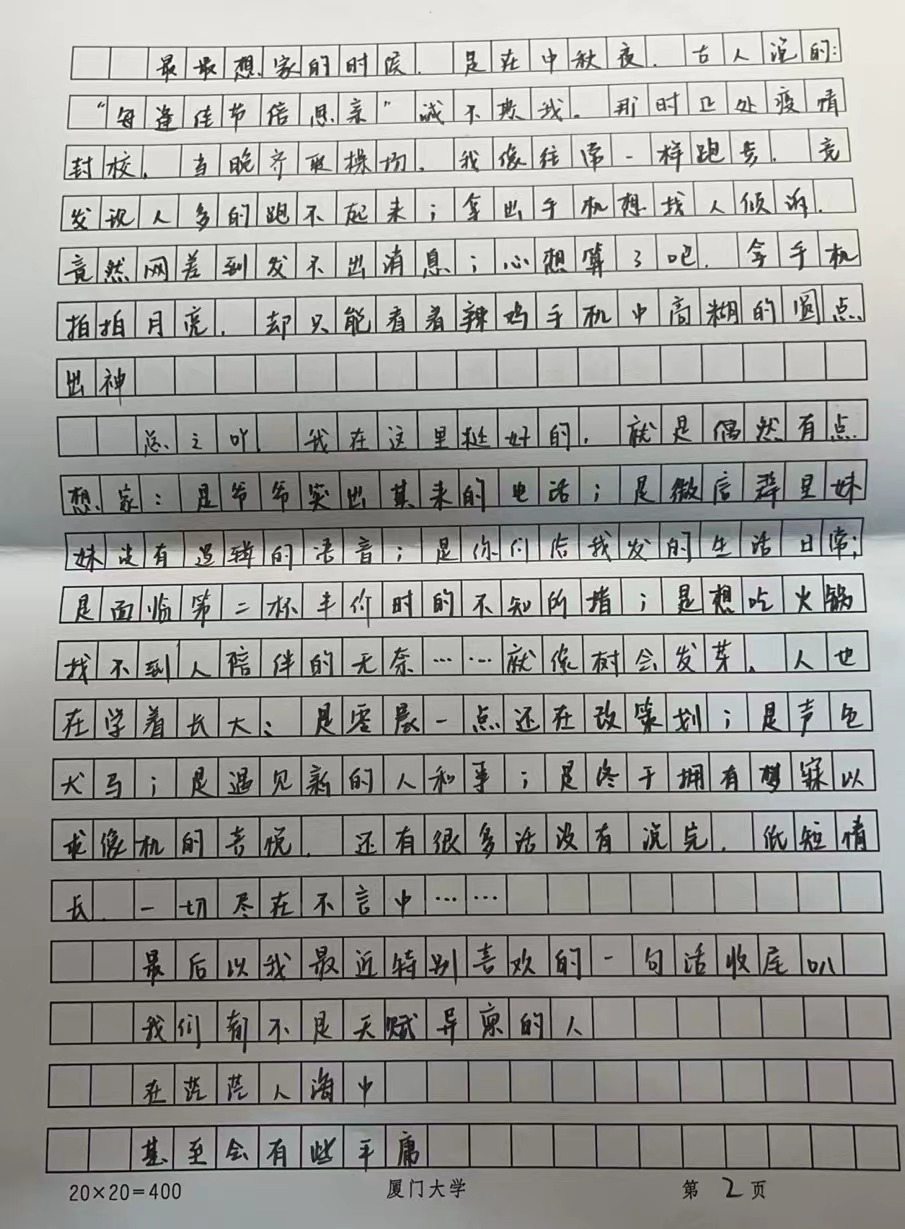 最最想家的时候，是在中秋夜，古人说的：
“每逢佳节倍思亲”诚不欺我。那时正处疫情
封校，当晚齐聚操场，我像往常一样跑步，竟
发现人多的跑不起来；拿出手机想找人倾诉，
竟然网差到发不出消息；心想算了吧，拿手机
拍拍月亮，却只能看着辣鸡手机中高糊的圆点
出神
总之吖，我在这里挺好的，就是偶然有点
想家：是爷爷突出其来的电话；是微信群里妹
妹没有逻辑的语音；是你们给我发的生活日常；
是面临第二杯半价时的不知所措；是想吃火锅
找不到人陪伴的无奈……就像树会发芽，人也
在学着长大：是零晨一点还在改策划；是声色
犬马；是遇见新的人和事；是终于拥有梦寐以
求像机的喜悦，还有很多话没有说完，纸短情
长，一切尽在不言中……
最后以我最近特别喜欢的一句话收尾叭
我们都不是天赋异禀的人
在茫茫人海中
甚至会有些平庸
20×20=400 厦门大学 第2页